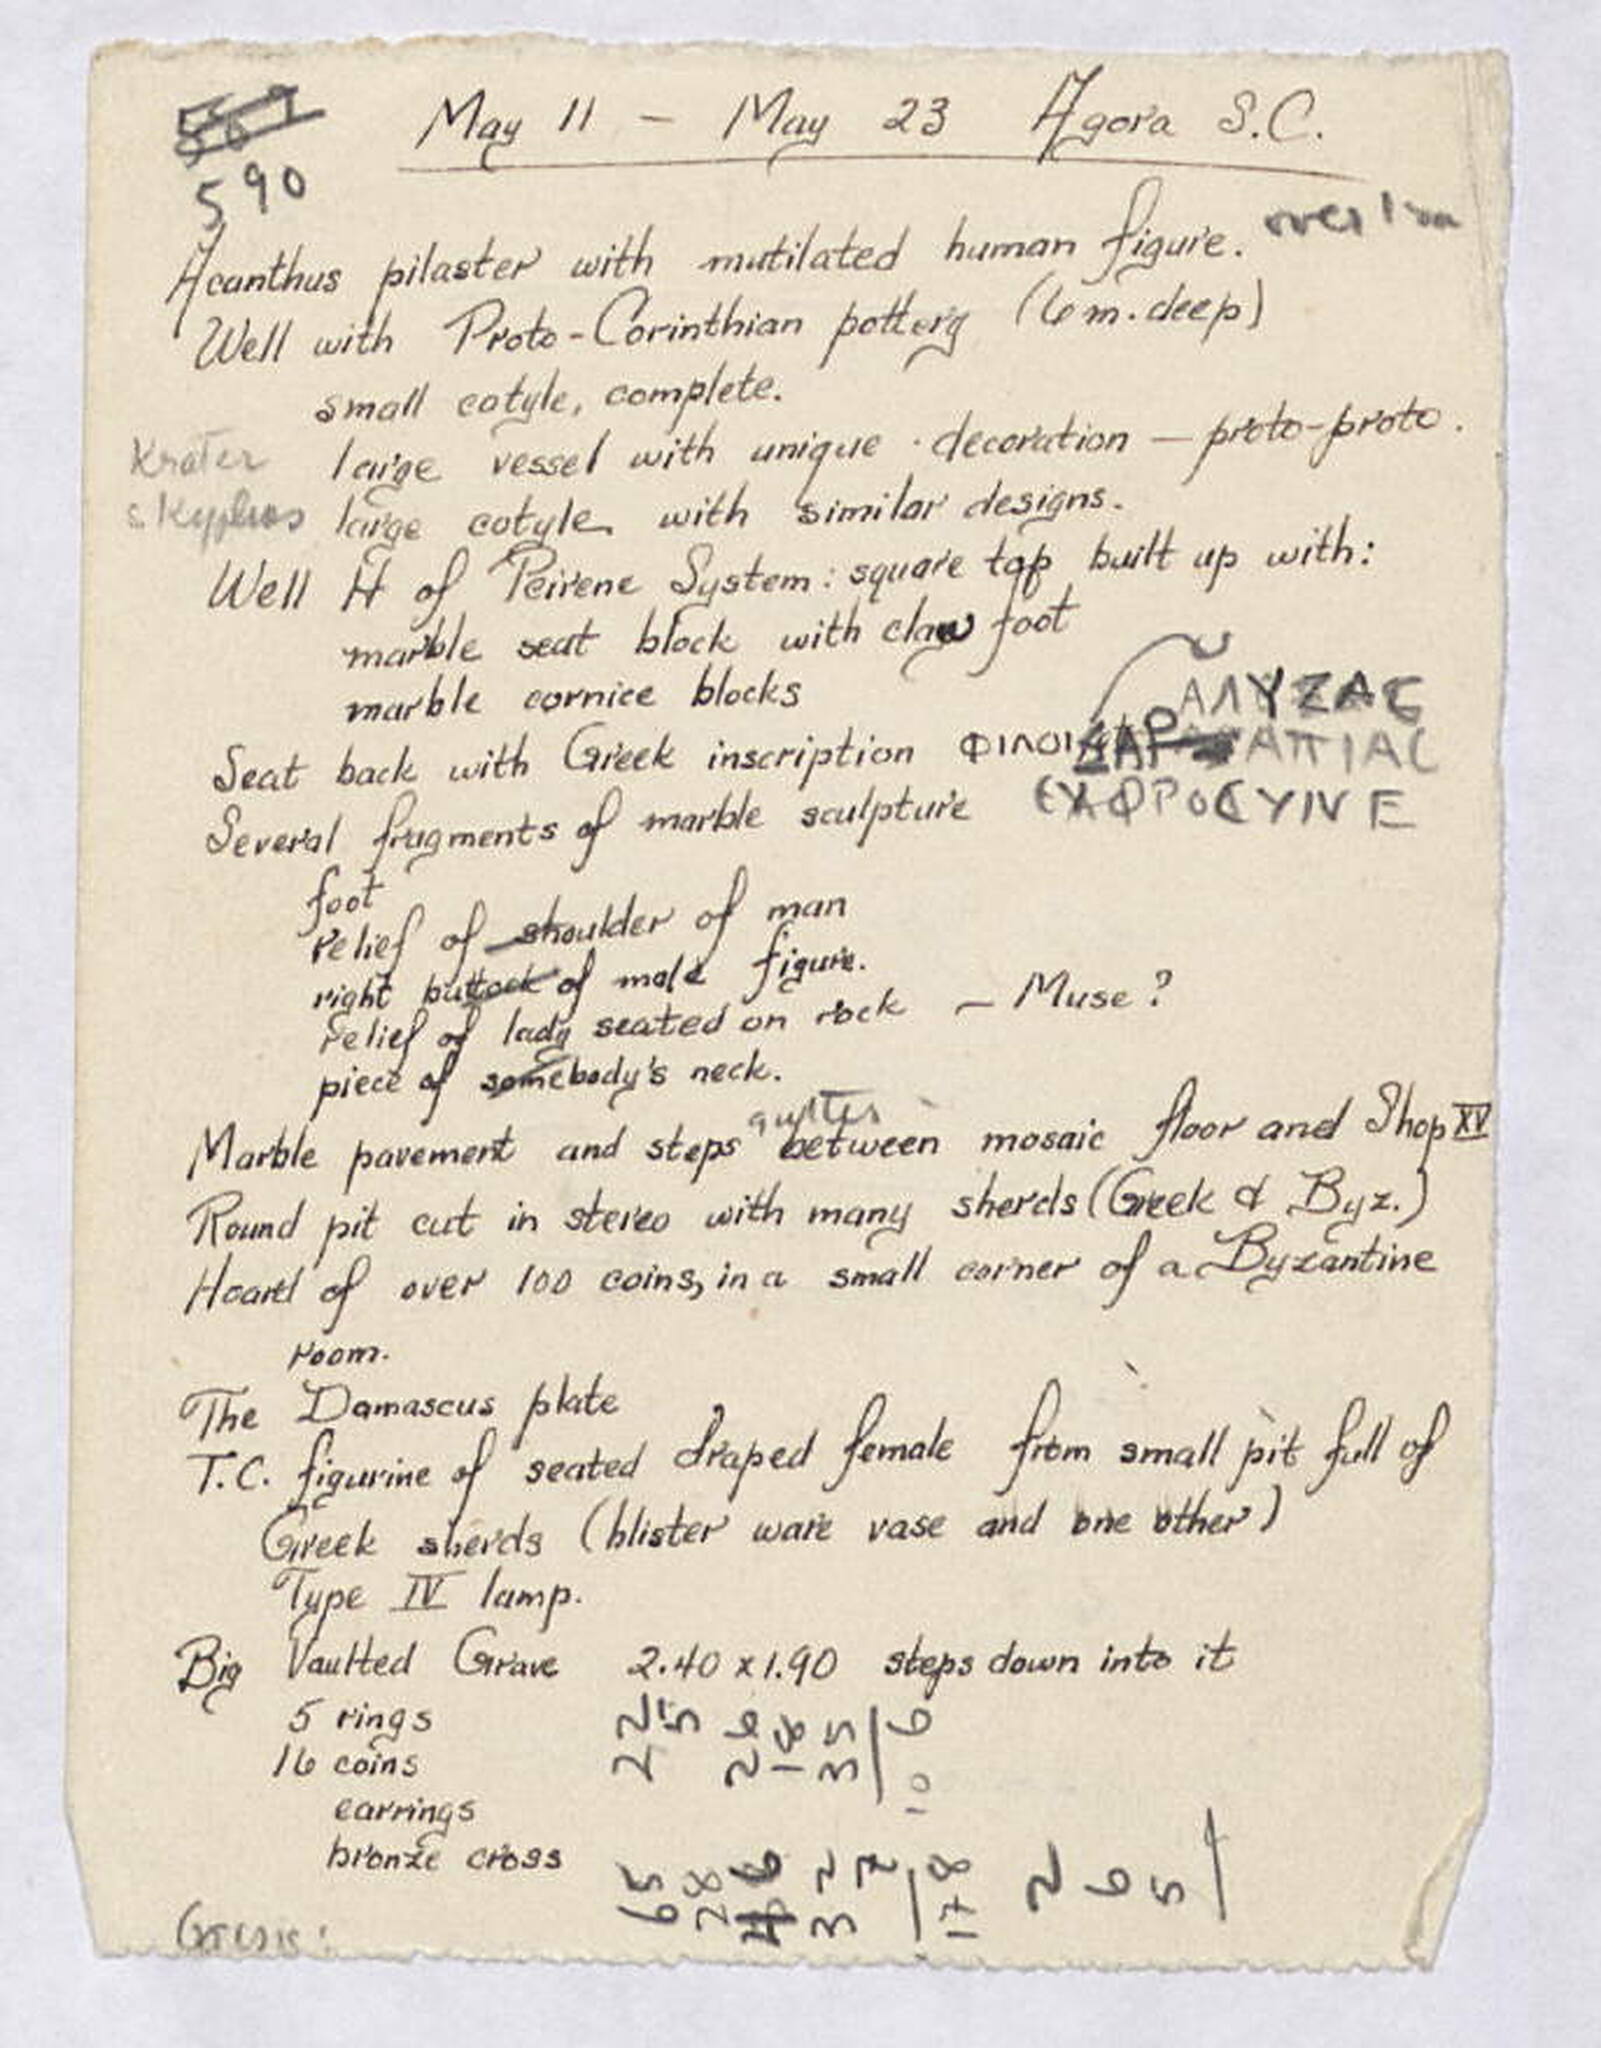 590
May 11 – May 23 Agora S.C.
Acanthus pilaster with mutilated human figure. over 1 m
Well with Proto-Corinthian pottery (6 m. deep)
small cotyle, complete.
Krater large vessel with unique decoration – proto-proto.
skyphos large cotyle with similar designs.
Well H of Peirene System: square top built up with:
marble seat block with claw foot
marble cornice blocks
ΑΛΥΖΑС
Seat back with Greek inscription ΦΙΛΟΙ
Several fragments of marble sculpture
foot
relief of shoulder of man
right buttock of male figure.
relief of lady seated on rock – Muse?
piece of somebody's neck.
Marble pavement and steps between mosaic floor and Shop XV
Round pit cut in stereo with many sherds (Greek & Byz.)
Hoard of over 100 coins, in a small corner of a Byzantine
room.
The Damascus plate
T.C. figurine of seated draped female from small pit full of
Greek sherds (blister ware vase and one other)
Type IV lamp.
Big Vaulted Grave 2.40 x 1.90 steps down into it
5 rings
16 coins
earrings
bronze cross